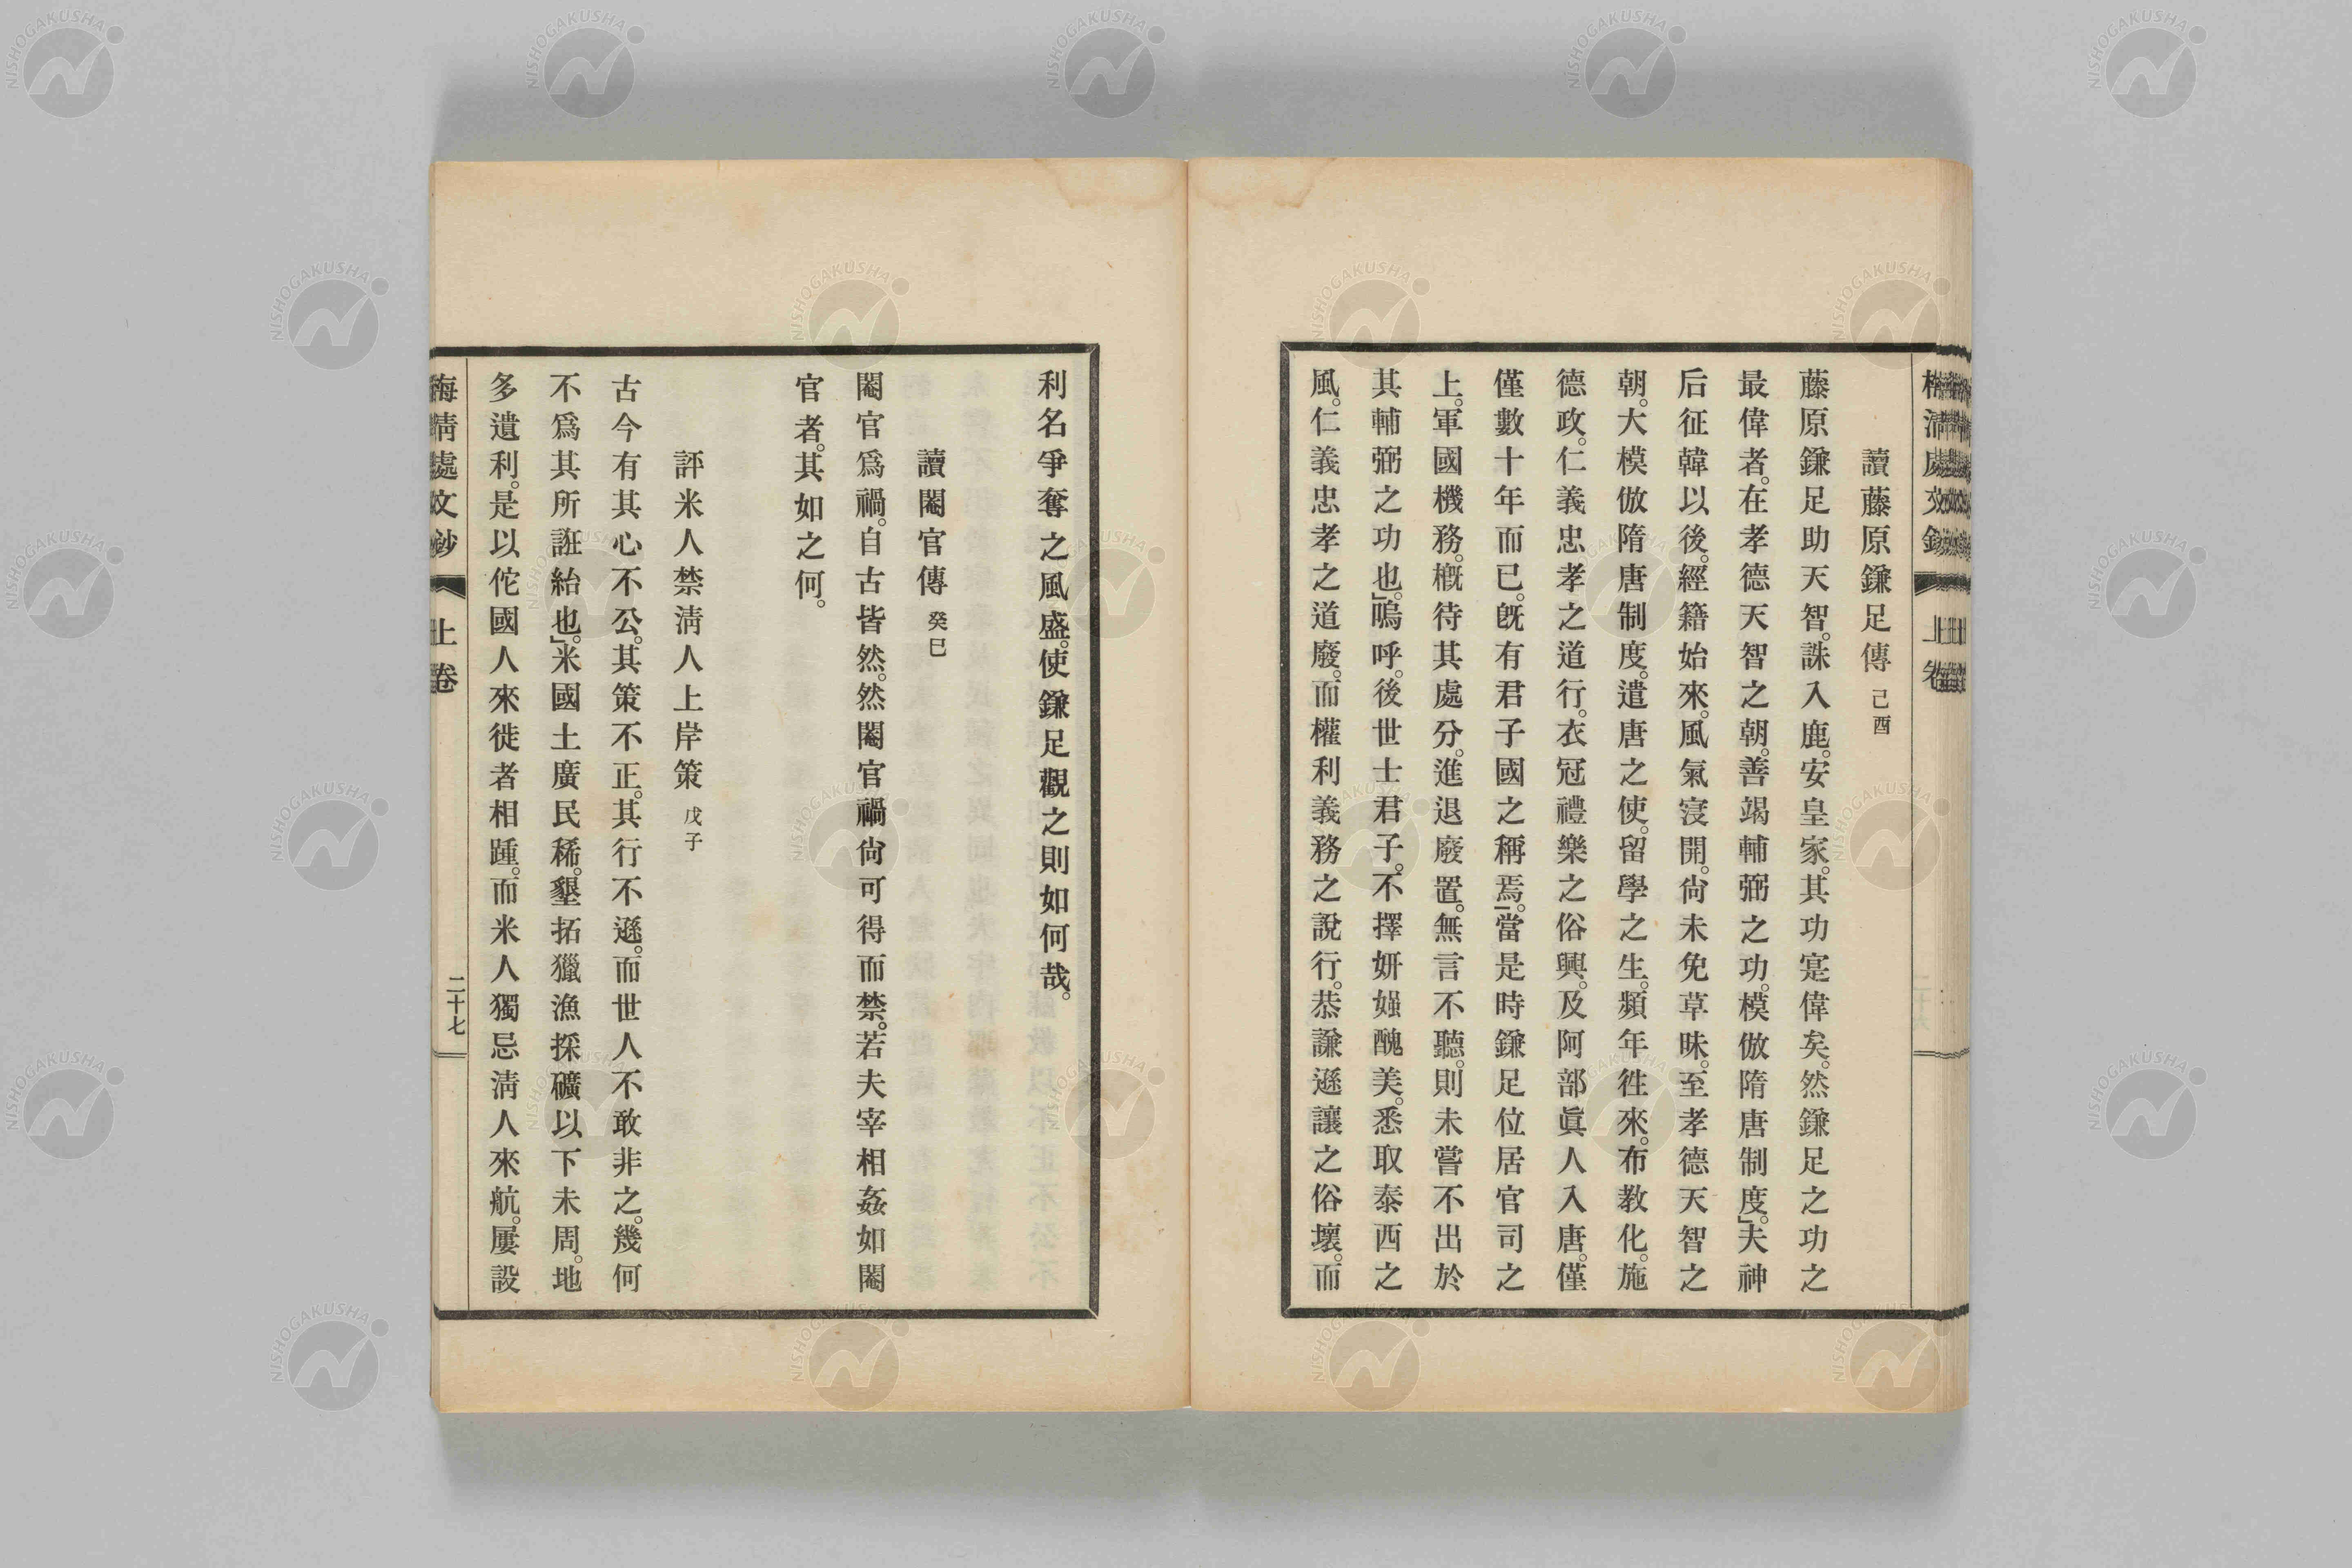 讀藤原鎌足傳 己酉
藤原鎌足助天智。誅入鹿。安皇家。其功寔偉矣。然鎌足之功之
最偉者。在孝德天智之朝。善竭輔弼之功。模倣隋唐制度。」夫神
后征韓以後。經籍始來。風氣寖開。尙未免草昧。至孝德天智之
朝。大模倣隋唐制度。遣唐之使。留學之生。頻年徃來。布教化。施
德政。仁義忠孝之道行。衣冠禮樂之俗興。及阿部眞人入唐。僅
僅數十年而已。旣有君子國之稱焉。」當是時鎌足位居官司之
上。軍國機務。槪待其處分。進退廢置。無言不聽。則未嘗不出於
其輔弼之功也。」嗚呼。後世士君子。不擇妍媸醜美。悉取泰西之
風。仁義忠孝之道廢。而權利義務之說行。恭謙遜讓之俗壞。而
利名爭奪之風盛。使鎌足觀之則如何哉。
讀閹官傳 癸巳
閹官爲禍。自古皆然。然閹官禍尙可得而禁。若夫宰相姦如閹
官者。其如之何。
評米人禁淸人上岸策 戊子
古今有其心不公。其策不正。其行不遜。而世人不敢非之。幾何
不爲其所誑紿也。」米國土廣民稀。墾拓獵漁採礦以下未周。地
多遺利。是以佗國人來徙者相踵。而米人獨忌淸人來航。屢設
梅淸處文鈔 上卷 二十七
NISHOGAKUSHA